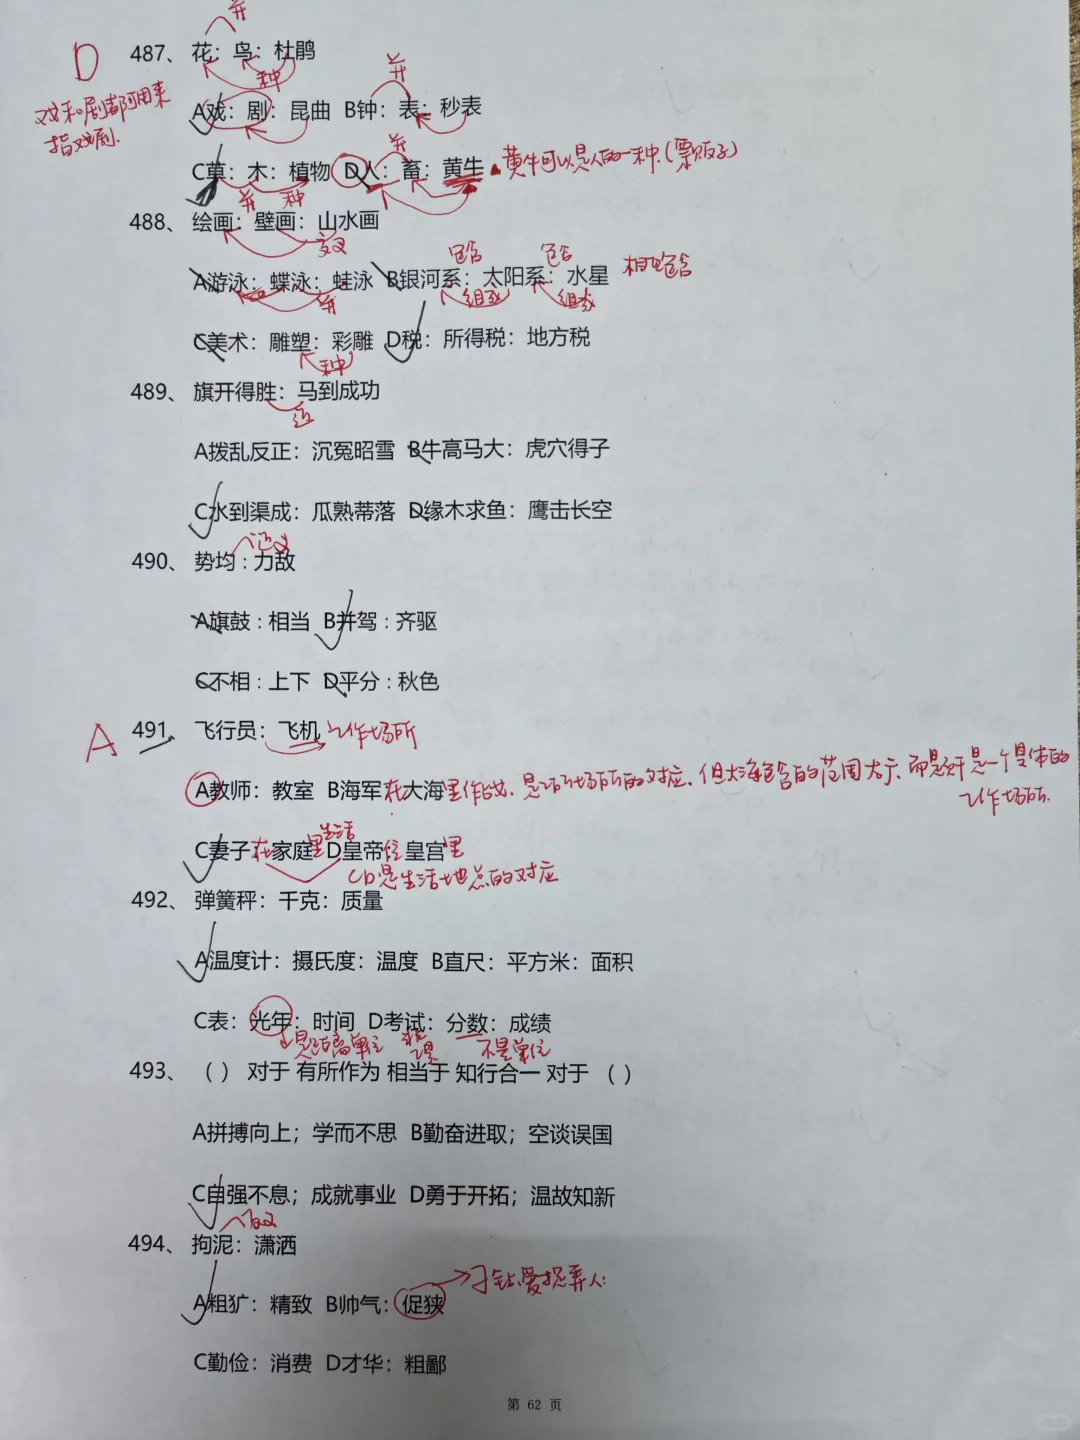 并
D 487、花：鸟：杜鹃
种 并
戏和剧都可用来
指戏剧.
A戏：剧：昆曲 B钟：表：秒表
并
C草：木：植物 D人：畜：黄牛 黄牛可以是人的一种.(票贩子)
并 种
488、绘画：壁画：山水画
交叉
包含 包含
A游泳：蝶泳：蛙泳 B银河系：太阳系：水星
并 组成 组成
C美术：雕塑：彩雕 D税：所得税：地方税
种
489、旗开得胜：马到成功
近
A拨乱反正：沉冤昭雪 B牛高马大：虎穴得子
C水到渠成：瓜熟蒂落 D缘木求鱼：鹰击长空
近义
490、势均：力敌
A旗鼓：相当 B并驾：齐驱
C不相：上下 D平分：秋色
A 491、飞行员：飞机 工作场所
A教师：教室 B海军在大海里作战. 但大海包含的范围太广. 是一个具体的
工作场所.
生活
C妻子在家庭里 D皇帝住皇宫里
CD是生活地点的对应
492、弹簧秤：千克：质量
A温度计：摄氏度：温度 B直尺：平方米：面积
C表：光年：时间 D考试：分数：成绩
是距离单位 不是单位
493、（ ）对于 有所作为 相当于 知行合一 对于 （ ）
A拼搏向上；学而不思 B勤奋进取；空谈误国
C自强不息；成就事业 D勇于开拓；温故知新
反义
494、拘泥：潇洒
刁钻,爱捉弄人.
A粗犷：精致 B帅气：促狭
C勤俭：消费 D才华：粗鄙
第 62 页